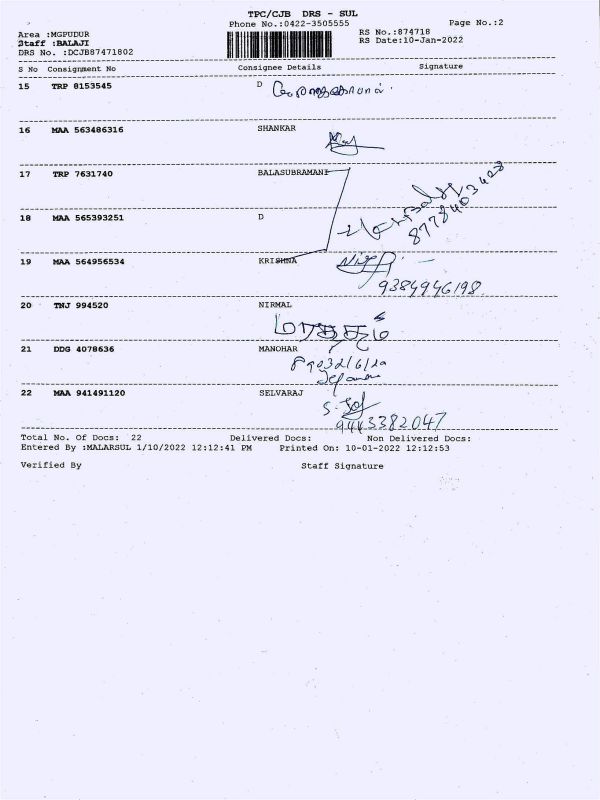 TPC/CJB DRS - SUL
Phone No.:0422-3505555 Page No.:2
Area :MGPUDUR RS No.:874718
Staff :BALAJI RS Date:10-Jan-2022
DRS No. :DCJB87471802
S No Consignment No Consignee Details Signature
15 TRP 8153545 D
16 MAA 563486316 SHANKAR
17 TRP 7631740 BALASUBRAMANI
8778403428
18 MAA 565393251 D
19 MAA 564956534 KRISHNA
9384946198
20 TNJ 994520 NIRMAL
21 DDG 4078636 MANOHAR
22 MAA 941491120 SELVARAJ
9443382047
Total No. Of Docs: 22 Delivered Docs: Non Delivered Docs:
Entered By :MALARSUL 1/10/2022 12:12:41 PM Printed On: 10-01-2022 12:12:53
Verified By Staff Signature